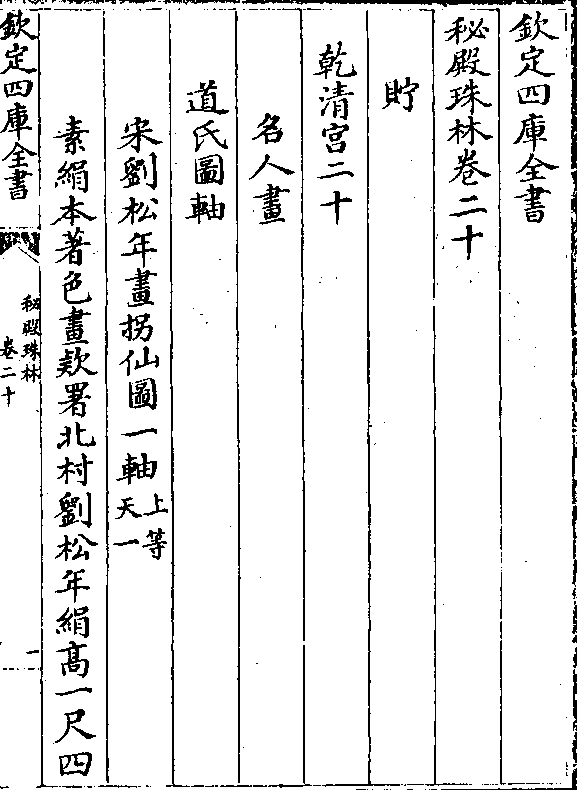 欽定四庫全書
秘殿珠林卷二十
貯
乾清宮二十
名人畫
道氏圖軸
宋劉松年畫拐仙圖一軸上等天一
素絹本著色畫款署北村劉松年絹髙一尺四
欽定四庫全書
秘殿珠林
卷二十
一